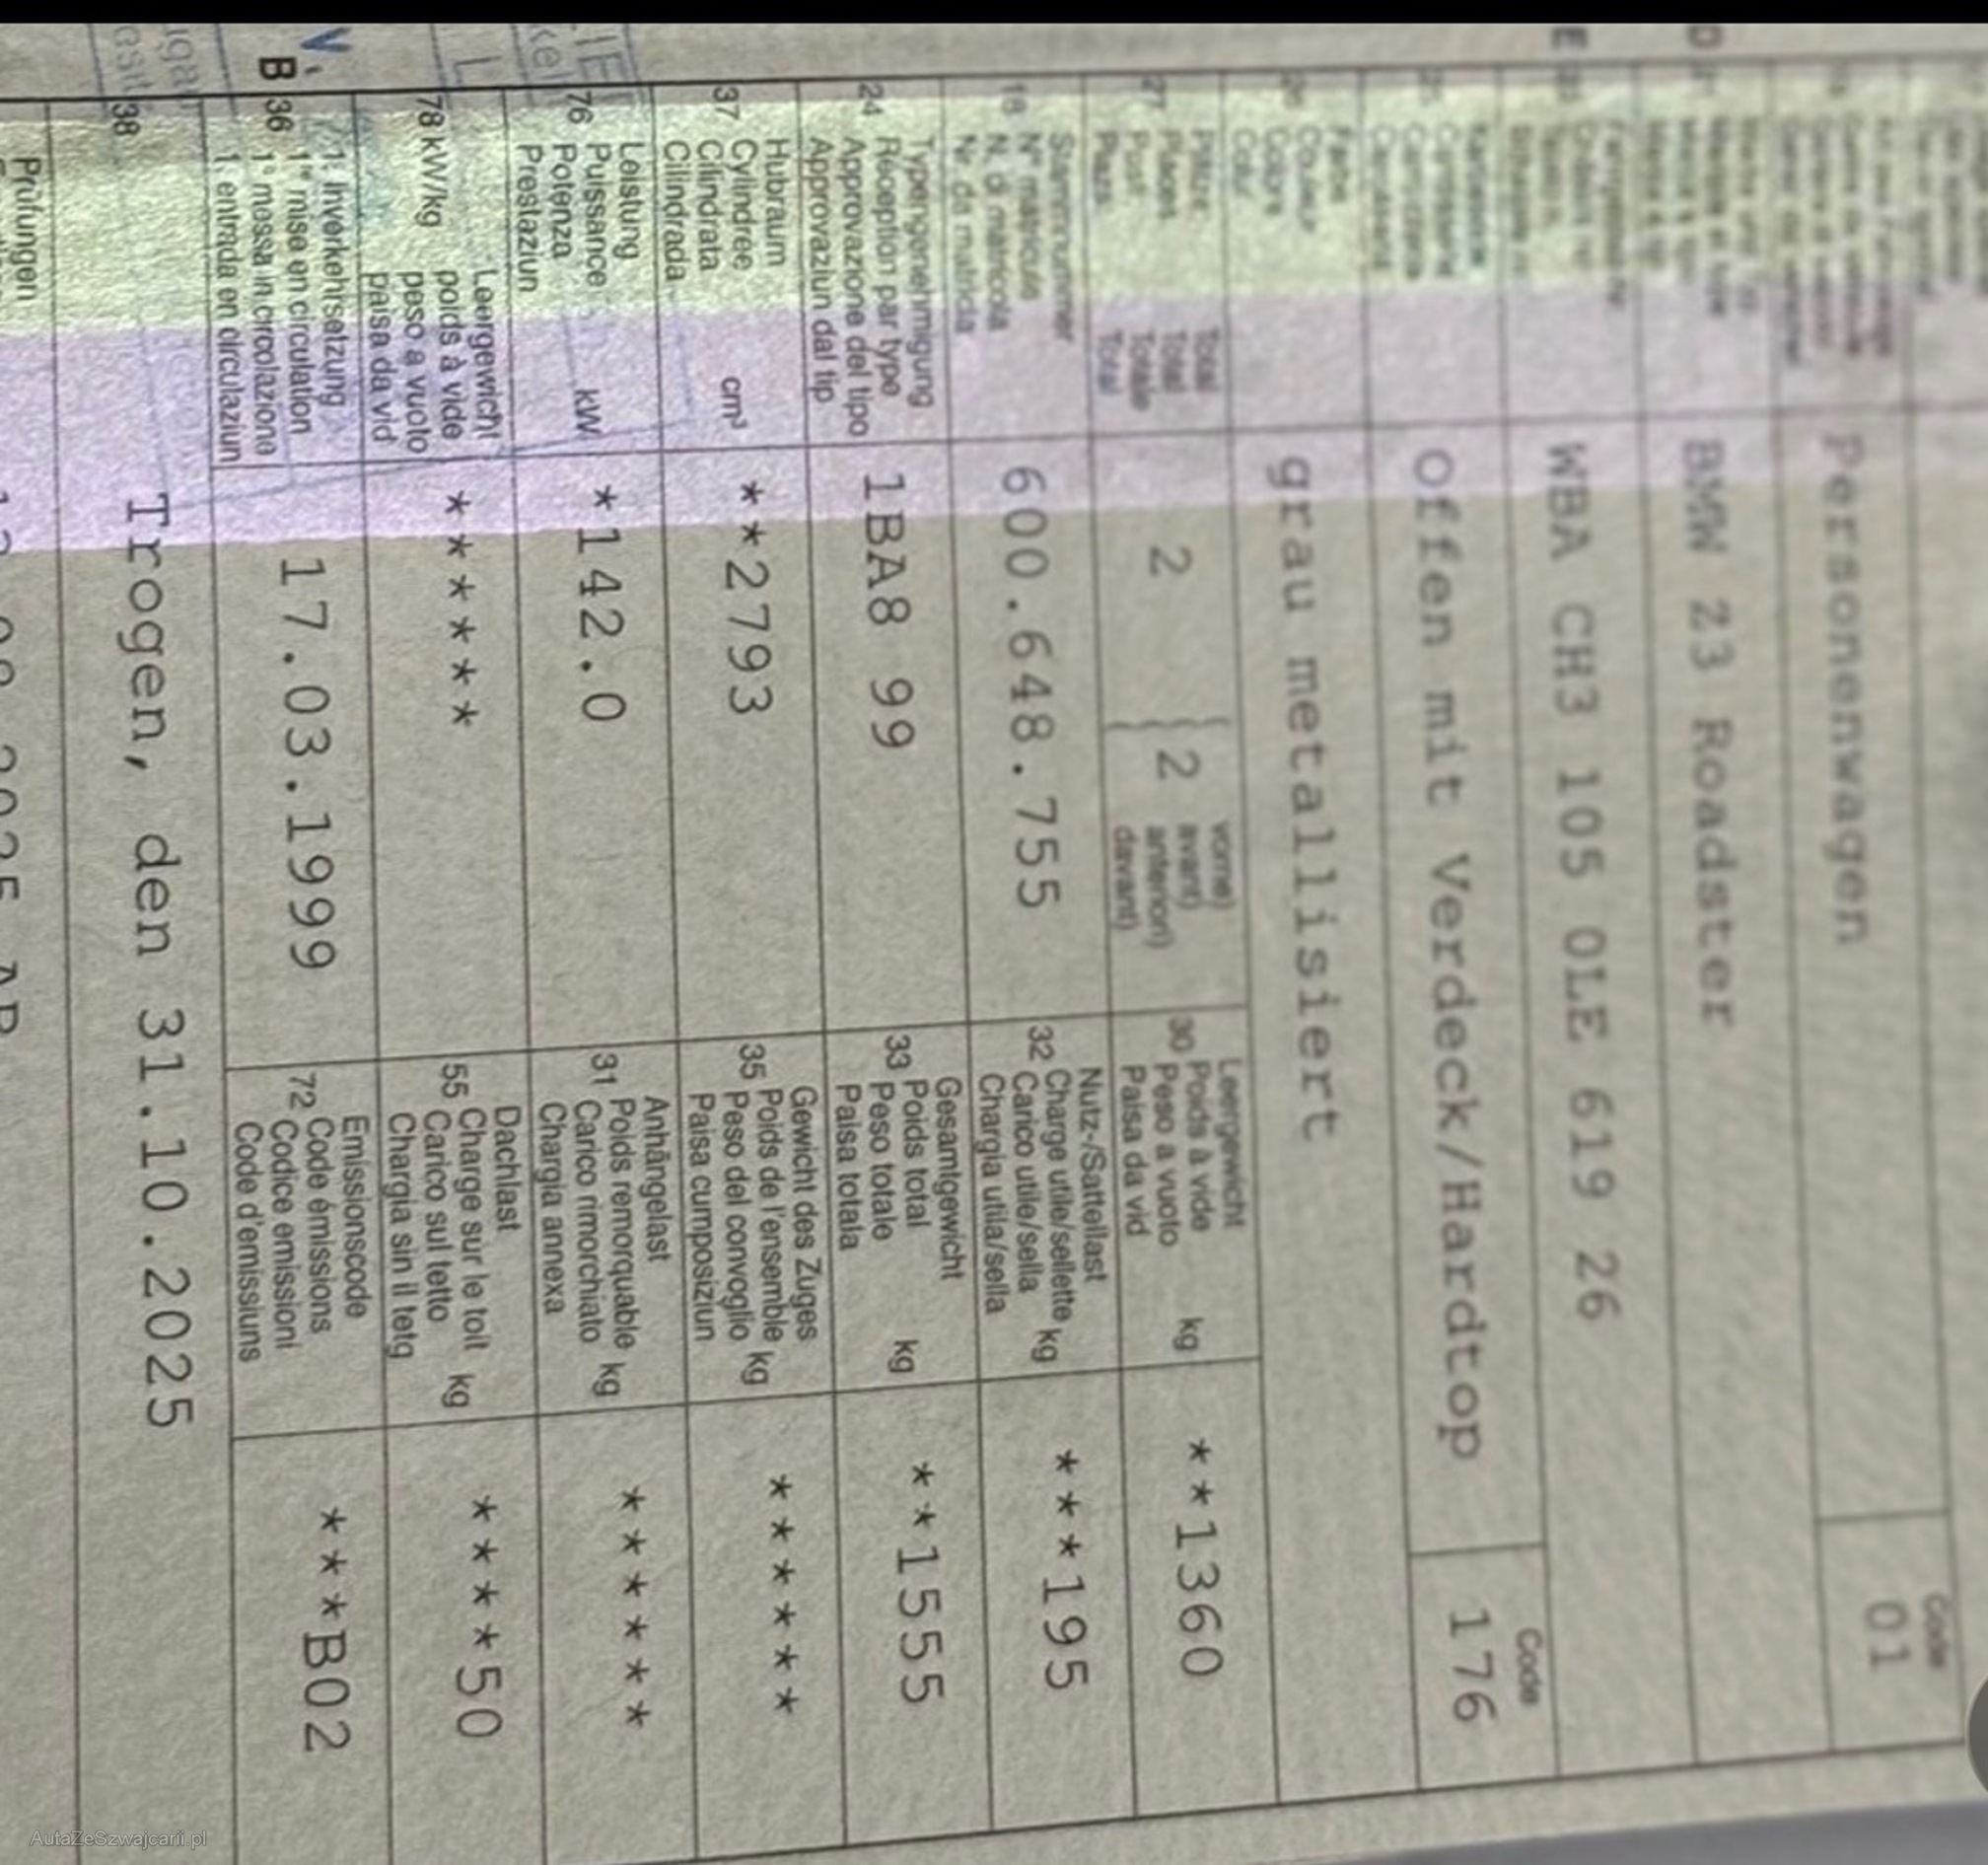 Personenwagen
Code
01
D
BMW Z3 Roadster
E
WBA CH3 105 0LE 619 26
Offen mit Verdeck/Hardtop
Code
176
Farbe
Couleur
Colore
Colur
grau metallisiert
27
Plätze
Places
Posti
Plazs
Total
Total
Totale
Total
2
2
vorne)
avant)
anteriori)
davant)
30
Leergewicht
Poids à vide
Peso a vuoto
Paisa da vid
kg
**1360
18
Stammnummer
N° matricule
N. di matricola
Nr. da matricla
600.648.755
32
Nutz-/Sattellast
Charge utile/sellette
Carico utile/sella
Chargia utila/sella
kg
***195
24
Typengenehmigung
Réception par type
Approvazione del tipo
Approvaziun dal tip
1BA8 99
33
Gesamtgewicht
Poids total
Peso totale
Paisa totala
kg
**1555
37
Hubraum
Cylindrée
Cilindrata
Cilindrada
cm³
**2793
35
Gewicht des Zuges
Poids de l'ensemble
Peso del convoglio
Paisa cumposiziun
kg
******
76
Leistung
Puissance
Potenza
Prestaziun
kW
*142.0
31
Anhängelast
Poids remorquable
Carico rimorchiato
Chargia annexa
kg
******
78 kW/kg
Leergewicht
poids à vide
peso a vuoto
paisa da vid
******
55
Dachlast
Charge sur le toit
Carico sul tetto
Chargia sin il tetg
kg
****50
B
36
1. Inverkehrsetzung
1re mise en circulation
1a messa in circolazione
1. entrada en circulaziun
17.03.1999
72
Emissionscode
Code émissions
Codice emissioni
Code d'emissiuns
***B02
38
Trogen, den 31.10.2025
Prüfungen
AutaZeSzwajcarii.pl